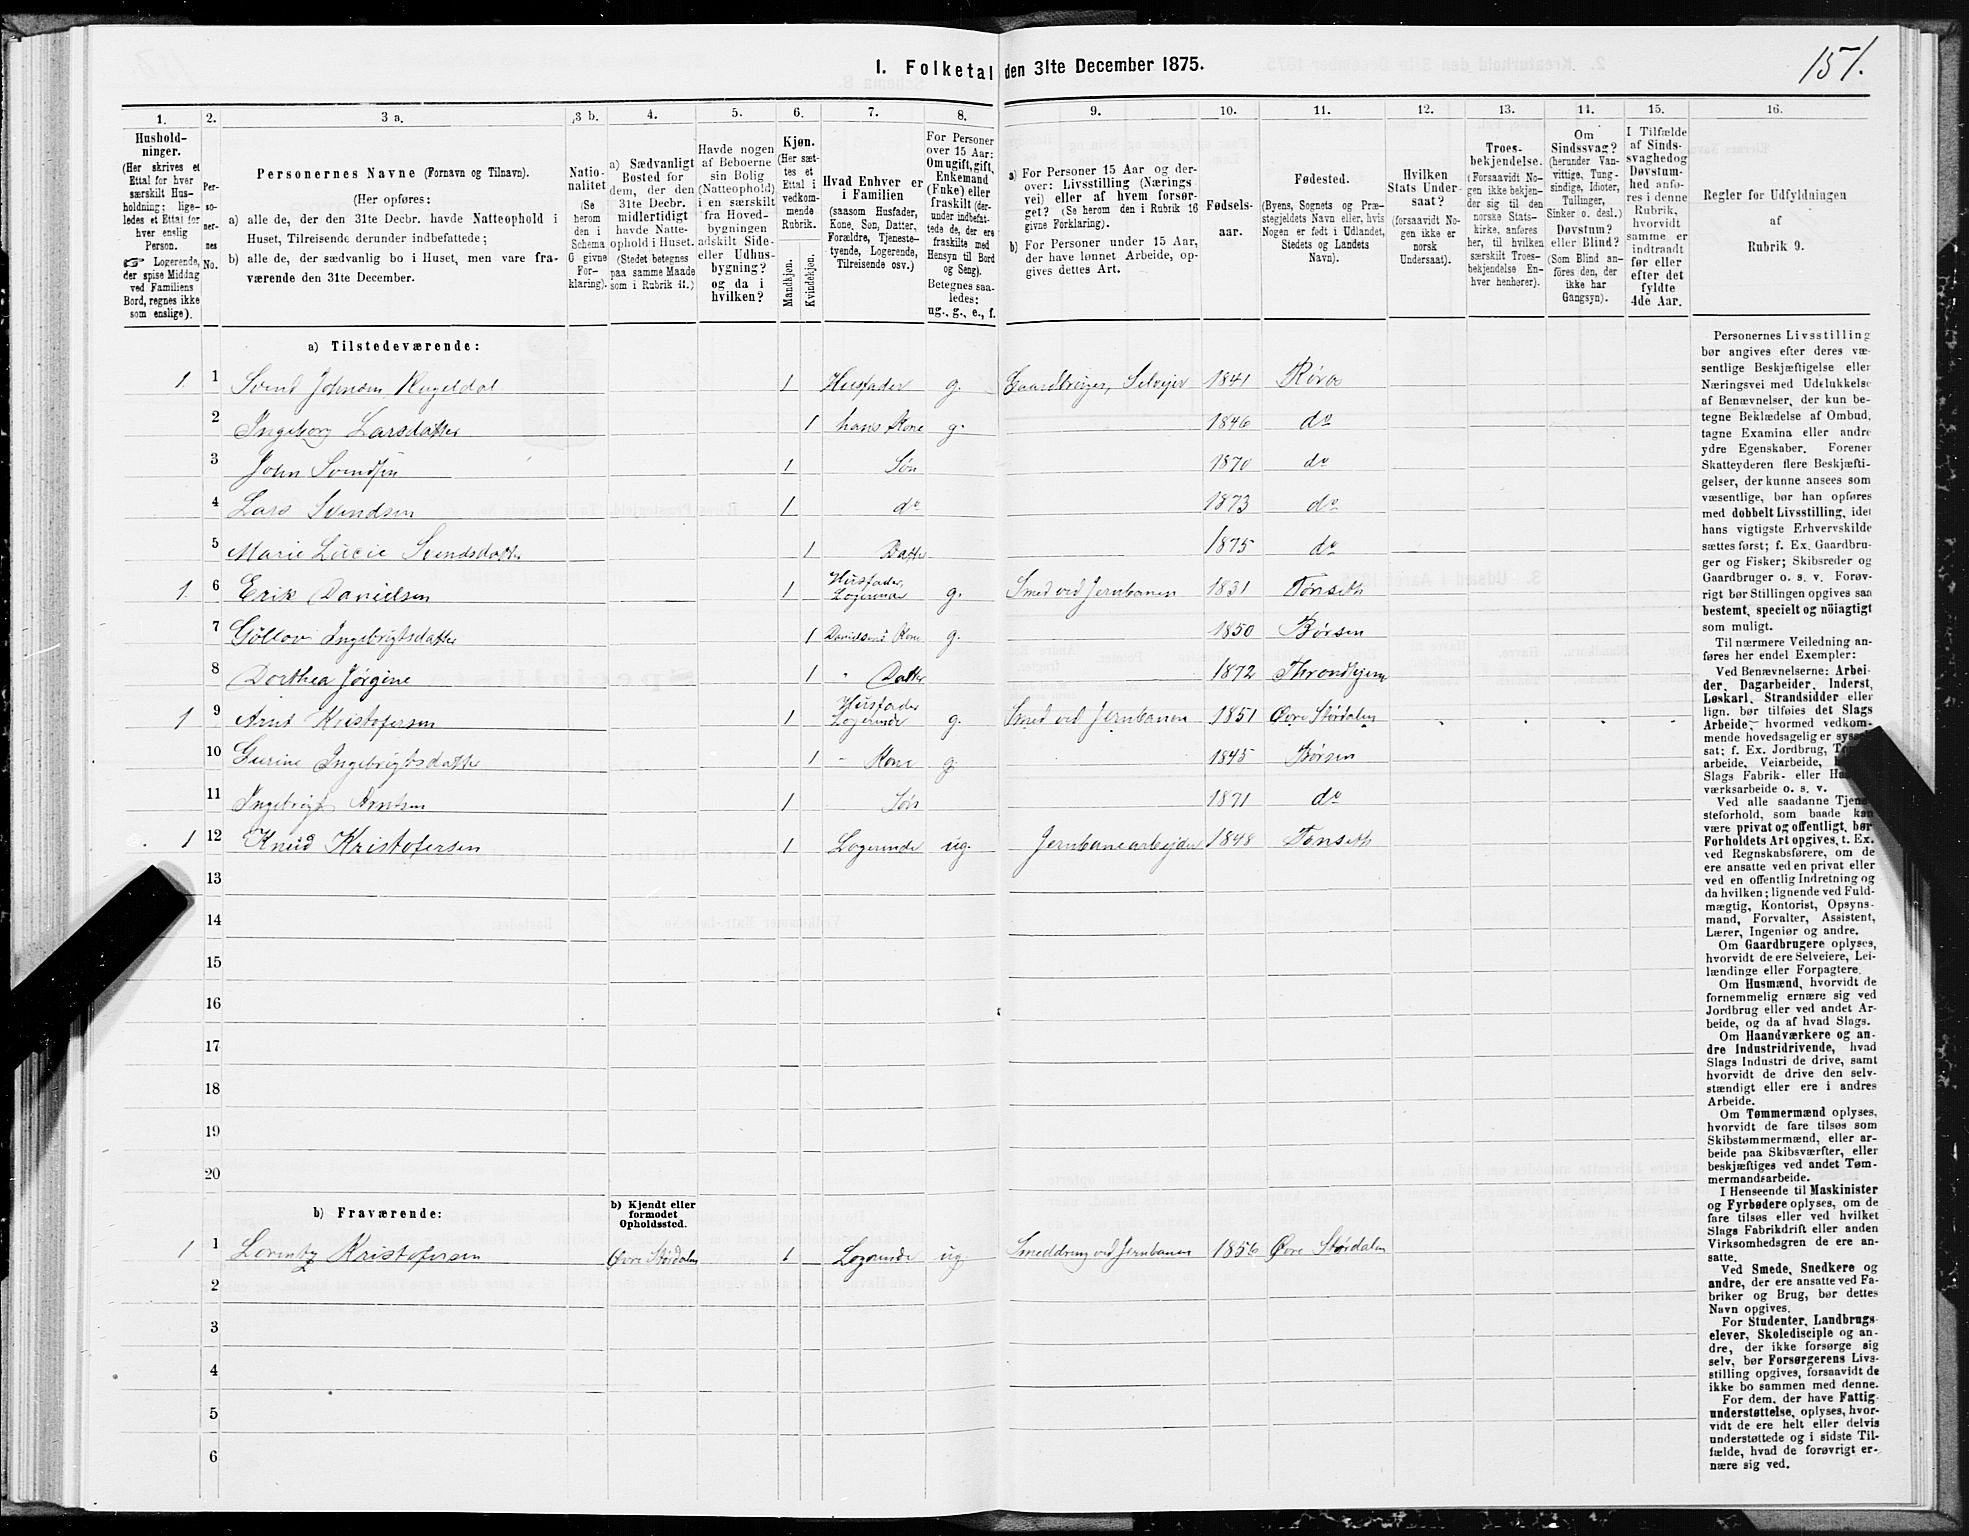 151.
I. Folketal den 31te December 1875.
1. 2. 3 a. 3 b. 4. 5. 6. 7. 8. 9. 10. 11. 12. 13. 14. 15. 16.
Hushold-
ninger.
(Her skrives et
Ettal for hver
særskilt Hus-
holdning; lige-
ledes et Ettal for
hver enslig
Person.
☞ Logerende,
der spise Middag
ved Familiens
Bord, regnes ikke
som enslige).
Per-
so-
ner-
nes
No.
Personernes Navne (Fornavn og Tilnavn).
(Her opføres:
a) alle de, der den 31te Decbr. havde Natteophold i
Huset, Tilreisende derunder indbefattede;
b) alle de, der sædvanlig bo i Huset, men vare fra-
værende den 31te December.
Natio-
nalitet
(Se
herom
den i
Schema
G givne
For-
klaring).
a) Sædvanligt
Bosted for
dem, der den
31te Decbr.
midlertidigt
havde Natte-
ophold i Huset.
(Stedet betegnes
paa samme Maade
som i Rubrik 11.)
Havde nogen
af Beboerne
sin Bolig
(Natteophold)
i en særskilt
fra Hoved-
bygningen
adskilt Side-
eller Udhus-
bygning?
og da i
hvilken?
Kjøn.
(Her sæt-
tes et
Ettal i
vedkom-
mende
Rubrik.
Mandkjøn.
Kvindekjøn.
Hvad Enhver er
i Familien
(saasom Husfader,
Kone, Søn, Datter,
Forældre, Tjeneste-
tyende, Logerende,
Tilreisende osv.)
For Personer
over 15 Aar:
Om ugift, gift,
Enkemand
(Enke) eller
fraskilt (der-
under indbefat-
tede de, der ere
fraskilte med
Hensyn til Bord
og Seng).
Betegnes saa-
ledes:
ug., g., e., f.
a) For Personer 15 Aar og der-
over: Livsstilling (Nærings-
vei) eller af hvem forsør-
get? (Se herom den i Rubrik 16
givne Forklaring).
b) For Personer under 15 Aar,
der have lønnet Arbeide, op-
gives dettes Art.
Fødsels-
aar.
Fødested.
(Byens, Sognets og Præ-
stegjeldets Navn eller, hvis
Nogen er født i Udlandet,
Stedets og Landets
Navn).
Hvilken
Stats Under-
saat?
(forsaavidt No-
gen ikke er
norsk
Undersaat).
Troes-
bekjendelse.
(Forsaavidt No-
gen ikke bekjen-
der sig til den
norske Stats-
kirke, anføres
her, til hvilken
særskilt Troes-
bekjendelse En-
hver henhører).
Om
Sindssvag?
(herunder Van-
vittige, Tung-
sindige, Idioter,
Tullinger,
Sinker o. desl.)
Døvstum?
eller Blind?
(Som Blind an-
føres den, der
ikke har
Gangsyn).
I Tilfælde
af Sinds-
svaghed og
Døvstum-
hed anfø-
res i denne
Rubrik,
hvorvidt
samme er
indtraadt
før eller
efter det
fyldte
4de Aar.
Regler for Udfyldningen
af
Rubrik 9.
a) Tilstedeværende:
1. 1 Svend Johnsen Rugeldal 1 Husfader g. Gaardbruger, Selveier 1841 Røros
2 Ingeborg Larsdatter 1 hans Kone g. 1846 do
3 John Svendsen 1 Søn 1870 do
4 Lars Svendsen 1 do 1873 do
5 Marie Lucie Svendsdatter 1 Datter 1875 do
1. 6 Erik Danielsen 1 Husfader, Logerende g. Smed ved Jernbanen 1831 Tønseth
7 Gollov Ingebrigtsdatter 1 Danielsens Kone g. 1850 Børsen
8 Dorthea Jørgine 1 " Datter 1872 Throndhjem
1 9 Arnt Kristofersen 1 Husfader Logerende g. Smed ved Jernbanen 1851 Øvre Størdalen
10 Gurine Ingebrigtsdatter 1 " Kone g. 1845 Børsen
11 Ingebrigt Arntsen 1 Søn 1871 do
1 12 Knud Kristofersen 1 Logerende ug. Jernbanearbejder 1848 Tønseth
13
14
15
16
17
18
19
20
b) Fraværende:
b) Kjendt eller
formodet
Opholdssted.
1 1 Lorentz Kristofersen Øvre Størdalen 1 Logerende ug. Smeddreng ved Jernbanen 1856 Øvre Størdalen
2
3
4
5
6
Personernes Livsstilling
bør angives efter deres væ-
sentlige Beskjæftigelse eller
Næringsvei med Udelukkelse
af Benævnelser, der kun be-
tegne Beklædelse af Ombud,
tagne Examina eller andre
ydre Egenskaber. Forener
Skatteyderen flere Beskjæfti-
gelser, der kunne ansees som
væsentlige, bør han opføres
med dobbelt Livsstilling, idet
hans vigtigste Erhvervskilde
sættes først; f. Ex. Gaardbru-
ger og Fisker; Skibsreder og
Gaardbruger o. s. v. Forøv-
rigt bør Stillingen opgives saa
bestemt, specielt og nöiagtigt
som muligt.
Til nærmere Veiledning an-
føres her endel Exempler:
Ved Benævnelserne: Arbei-
der, Dagarbeider, Inderst,
Løskarl, Strandsidder eller
lign. bør tilføies det Slags
Arbeide, hvormed vedkom-
mende hovedsagelig er syssel-
sat; f. Ex. Jordbrug,
arbeide, Veiarbeide,
Slags Fabrik- eller
værksarbeide o. s. v.
Ved alle saadanne Tjene-
steforhold, som baade kan
være privat og offentligt, bør
Forholdets Art opgives, t. Ex.
ved Regnskabsførere, om de
ere ansatte ved en privat eller
ved en offentlig Indretning og
da hvilken; lignende ved Fuld-
mægtig, Kontorist, Opsyns-
mand, Forvalter, Assistent,
Lærer, Ingeniør og andre.
Om Gaardbrugere oplyses,
hvorvidt de ere Selveiere, Lei-
lændinge eller Forpagtere.
Om Husmænd, hvorvidt de
fornemmelig ernære sig ved
Jordbrug eller ved andet Ar-
beide, og da af hvad Slags.
Om Haandværkere og an-
dre Industridrivende, hvad
Slags Industri de drive, samt
hvorvidt de drive den selv-
stændigt eller ere i andres
Arbeide.
Om Tømmermænd oplyses,
hvorvidt de fare tilsøs som
Skibstømmermænd, eller ar-
beide paa Skibsværfter, eller
beskjæftiges ved andet Tøm-
mermandsarbeide.
I Henseende til Maskinister
og Fyrbødere oplyses, om de
fare tilsøs eller ved hvilket
Slags Fabrikdrift eller anden
Virksomhedsgren de ere an-
satte.
Ved Smede, Snedkere og
andre, der ere ansatte ved Fa-
briker og Brug, bør dettes
Navn opgives.
For Studenter, Landbrugs-
elever, Skoledisciple og an-
dre, der ikke forsørge sig
selv, bør Forsørgerens Livs-
stilling opgives, forsaavidt de
ikke bo sammen med denne.
For dem, der have Fattig-
understøttelse, oplyses, hvor-
vidt de ere helt eller delvis
understøttede og i sidste Til-
fælde, hvad de forøvrigt er-
nære sig ved.